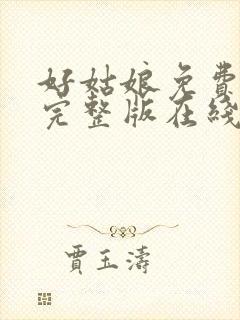 好姑娘免費
完整版在綫
賈玉濤